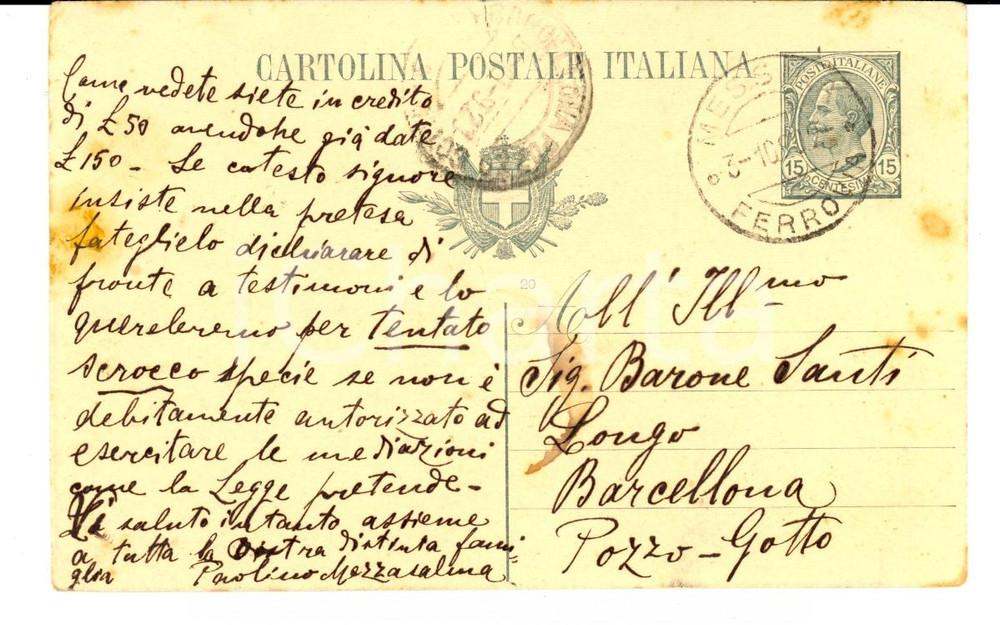 CARTOLINA POSTALE ITALIANA
POSTE ITALIANE
15 15
CENTESIMI
MESS
3-10
FERRO
Come vedete siete in credito
di £50 avendone già date
£150 - Se cotesto signore
insiste nella pretesa
fateglielo dichiarare di
fronte a testimoni e lo
quereleremo per tentato
scrocco specie se non è
debitamente autorizzato ad
esercitare le mediazioni
come la Legge pretende -
Vi saluto intanto assieme
a tutta la Vostra distinta fami-
glia Paolino Mezzasalma
20
All' Ill mo
Sig. Barone Santi
Longo
Barcellona
Pozzo-Gotto